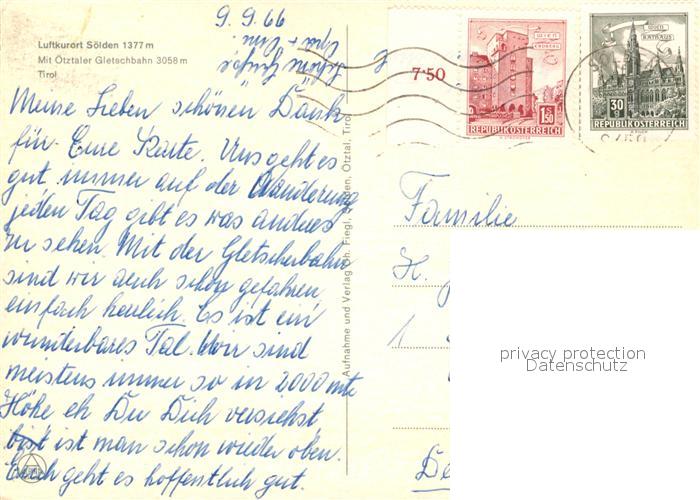 9.9.66
Luftkurort Sölden 1377 m
Mit Ötztaler Gletschbahn 3058 m
Tirol
Meine Lieben schönen Dank
für Eure Karte. Uns geht es
gut immer auf der Wanderung
jeden Tag gibt es was anderes
zu sehen. Mit der Gletscherbahn
sind wir auch schon gefahren
einfach herrlich. Es ist ein
wunderbares Tal. Wir sind
meistens immer so in 2000 mte
Höhe eh Du Dich versiehst
bist ist man schon wieder oben.
Euch geht es hoffentlich gut.
Schöne Grüße
Aufnahme und Verlag Ötztal, Tirol
7·50
WIEN
ERDBERG
1.50
REPUBLIK ÖSTERREICH
WIEN
RATHAUS
30 g
REPUBLIK ÖSTERREICH
Familie
H.
1
privacy protection
Datenschutz